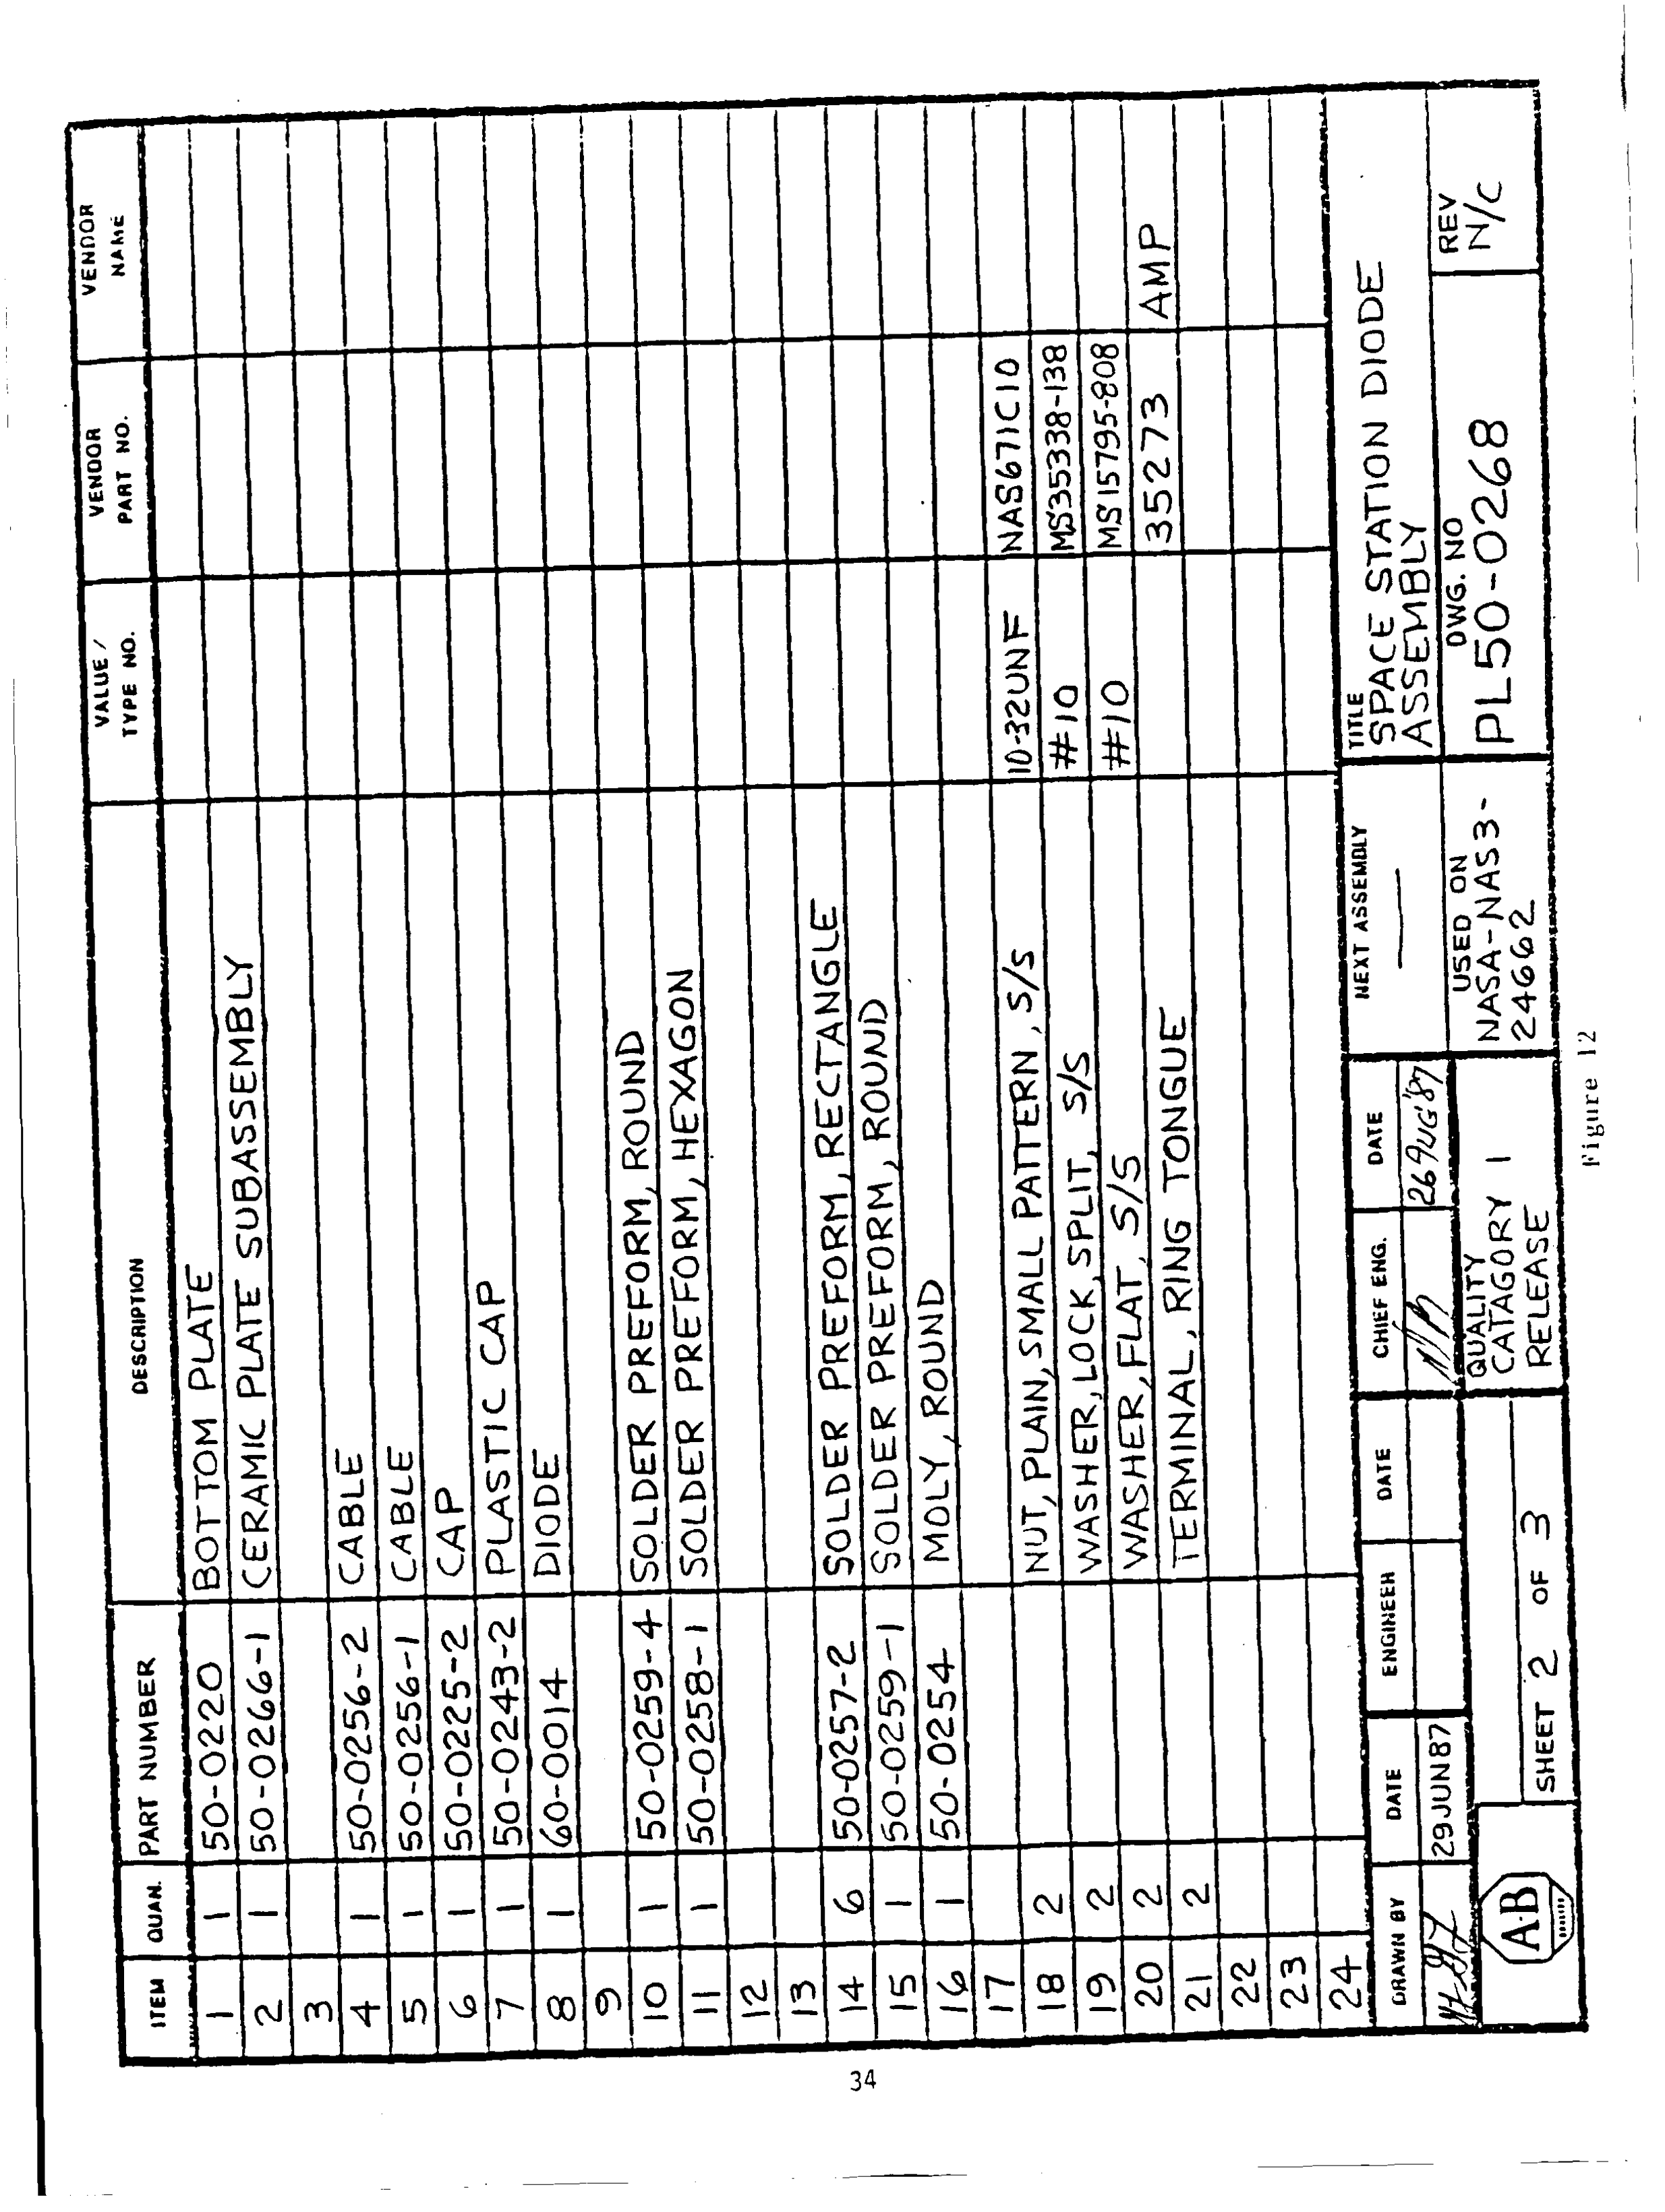 ITEM QUAN. PART NUMBER DESCRIPTION VALUE / TYPE NO. VENDOR PART NO. VENDOR NAME
1 1 50-0220 BOTTOM PLATE
2 1 50-0266-1 CERAMIC PLATE SUBASSEMBLY
3
4 1 50-0256-2 CABLE
5 1 50-0256-1 CABLE
6 1 50-0225-2 CAP
7 1 50-0243-2 PLASTIC CAP
8 1 60-0014 DIODE
9
10 1 50-0259-4 SOLDER PREFORM, ROUND
11 1 50-0258-1 SOLDER PREFORM, HEXAGON
12
13
14 6 50-0257-2 SOLDER PREFORM, RECTANGLE
15 1 50-0259-1 SOLDER PREFORM, ROUND
16 1 50-0254 MOLY, ROUND
17
18 2 NUT, PLAIN, SMALL PATTERN, S/S 10-32UNF NAS671C10
19 2 WASHER, LOCK, SPLIT, S/S #10 MS35338-138
20 2 WASHER, FLAT, S/S #10 MS15795-808
21 2 TERMINAL, RING TONGUE 35273 AMP
22
23
24
DRAWN BY DATE ENGINEER DATE CHIEF ENG. DATE NEXT ASSEMBLY TITLE
29JUN87 26AUG'87 — SPACE STATION DIODE
ASSEMBLY
A-B
SHEET 2 OF 3
QUALITY
CATAGORY 1
RELEASE
USED ON
NASA-NAS3-
24662
DWG. NO
PL50-0268
REV
N/C
Figure 12
34